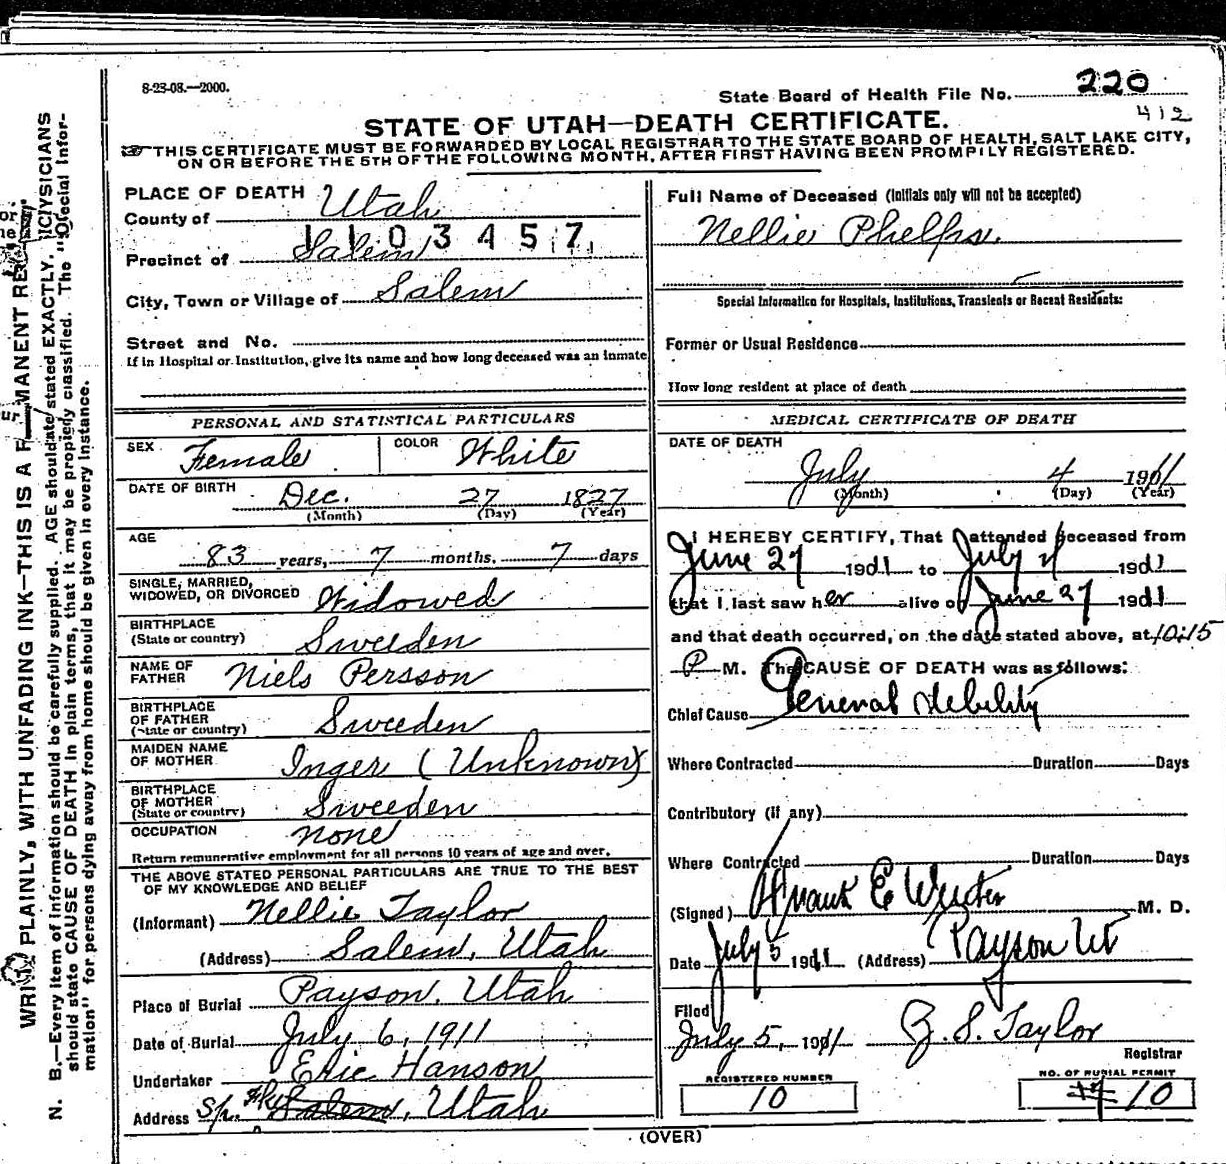 8-23-08.—2000.
State Board of Health File No. 220
412
STATE OF UTAH—DEATH CERTIFICATE.
THIS CERTIFICATE MUST BE FORWARDED BY LOCAL REGISTRAR TO THE STATE BOARD OF HEALTH, SALT LAKE CITY,
ON OR BEFORE THE 5TH OF THE FOLLOWING MONTH, AFTER FIRST HAVING BEEN PROMPTLY REGISTERED.
PLACE OF DEATH
County of Utah
1103457
Precinct of Salem
City, Town or Village of Salem
Street and No.
If in Hospital or Institution, give its name and how long deceased was an inmate
Full Name of Deceased (Initials only will not be accepted)
Nellie Phelps.
Special Information for Hospitals, Institutions, Transients or Recent Residents:
Former or Usual Residence
How long resident at place of death
PERSONAL AND STATISTICAL PARTICULARS
SEX Female COLOR White
DATE OF BIRTH Dec. 27 1827
(Month) (Day) (Year)
AGE
83 years, 7 months, 7 days
SINGLE, MARRIED,
WIDOWED, OR DIVORCED Widowed
BIRTHPLACE
(State or country) Sweeden
NAME OF
FATHER Niels Persson
BIRTHPLACE
OF FATHER
(State or country) Sweeden
MAIDEN NAME
OF MOTHER Inger (Unknown)
BIRTHPLACE
OF MOTHER
(State or country) Sweeden
OCCUPATION none
Return remunerative employment for all persons 10 years of age and over.
THE ABOVE STATED PERSONAL PARTICULARS ARE TRUE TO THE BEST
OF MY KNOWLEDGE AND BELIEF
(Informant) Nellie Taylor
(Address) Salem, Utah
Place of Burial Payson, Utah
Date of Burial July 6, 1911
Undertaker Eric Hanson
Address Sp. Fk. Salem, Utah
MEDICAL CERTIFICATE OF DEATH
DATE OF DEATH
July 4 1911
(Month) (Day) (Year)
I HEREBY CERTIFY, That I attended deceased from
June 27 1911 to July 4 1911
that I last saw her alive on June 27 1911
and that death occurred, on the date stated above, at 10:15
P M. The CAUSE OF DEATH was as follows:
Chief Cause General debility
Where Contracted Duration Days
Contributory (if any)
Where Contracted Duration Days
(Signed) Frank E M. D.
Date July 5 1911 (Address) Payson Ut
Filed
July 5, 1911 Z. S. Taylor
Registrar
REGISTERED NUMBER
10
NO. OF BURIAL PERMIT
10
(OVER)
WRITE PLAINLY, WITH UNFADING INK—THIS IS A PERMANENT RE
N. B.—Every item of information should be carefully supplied. AGE should be stated EXACTLY. PHYSICIANS
should state CAUSE OF DEATH in plain terms, that it may be properly classified. The "Special Infor-
mation" for persons dying away from home should be given in every instance.